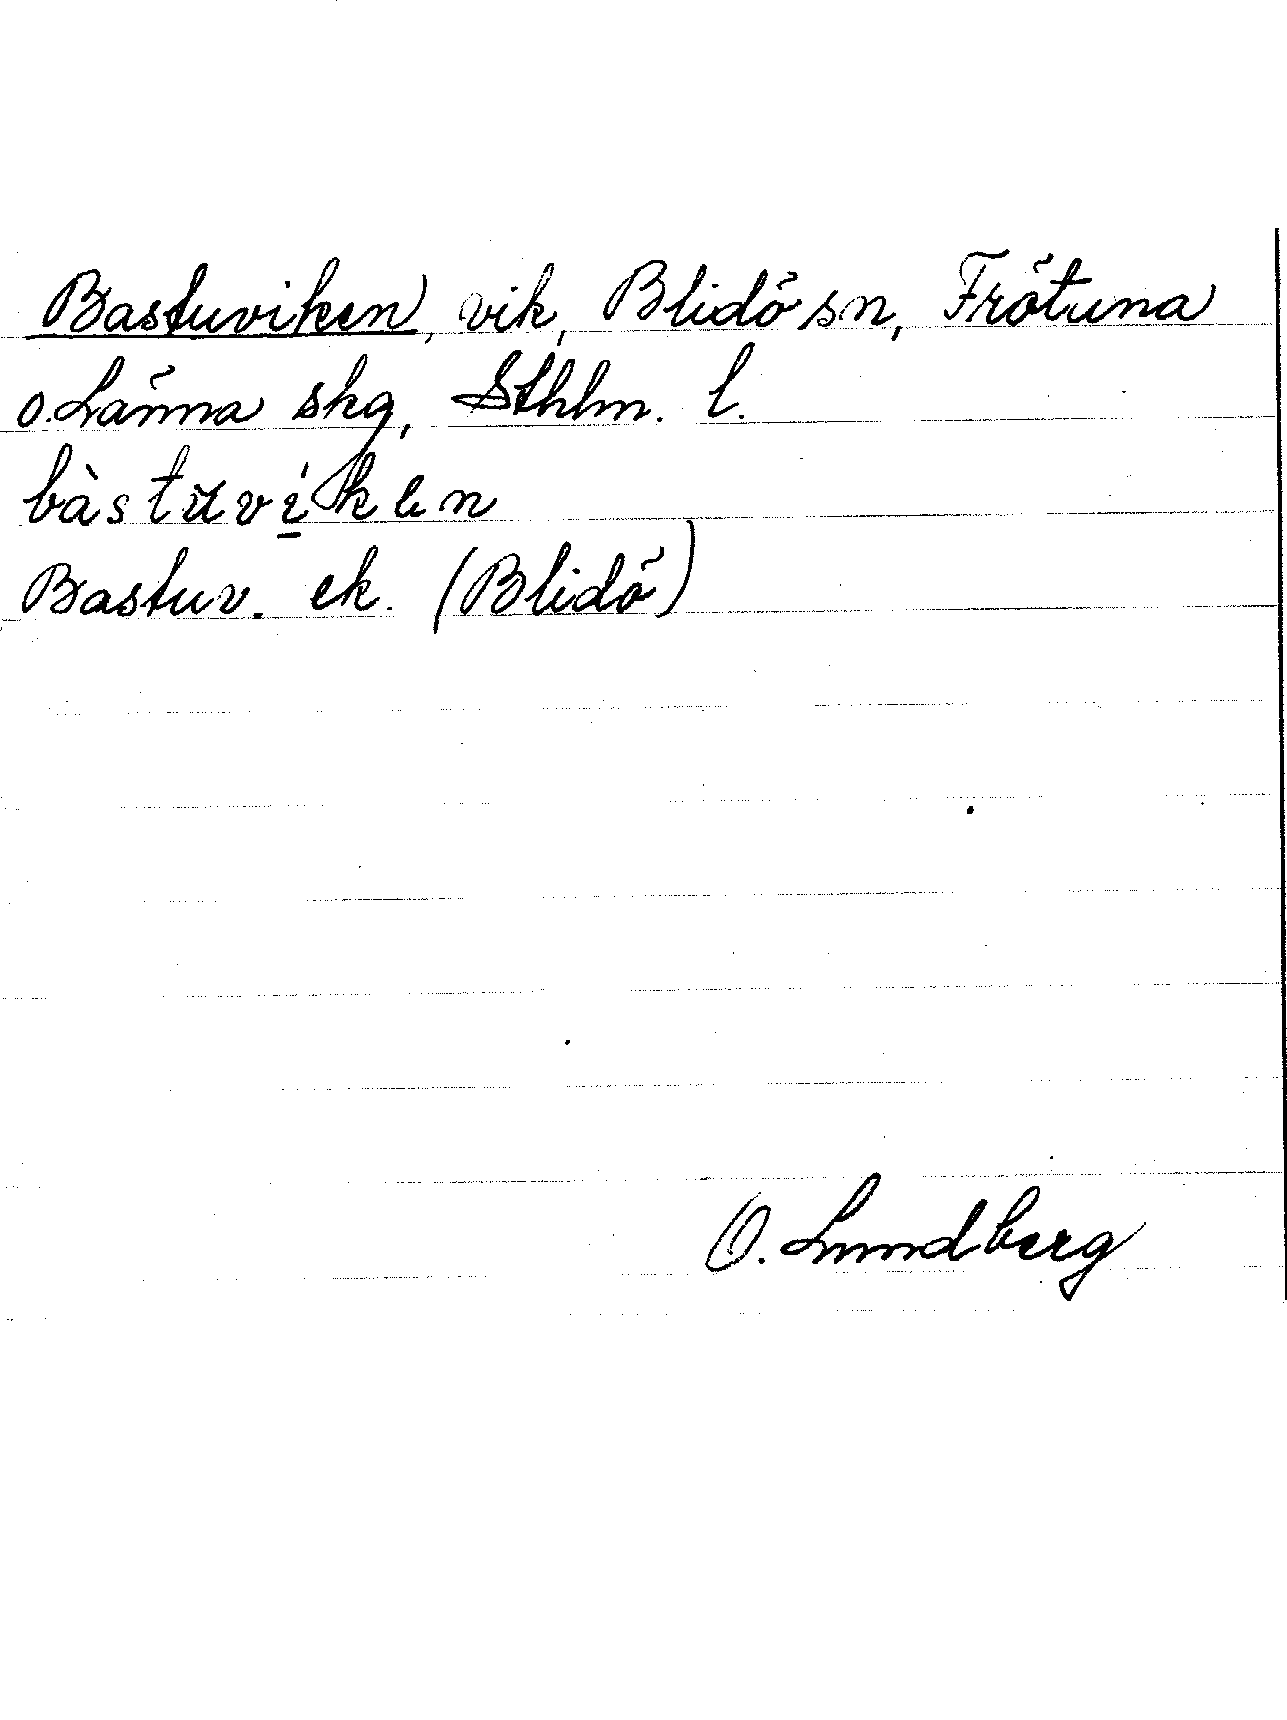 Bastuviken, vik, Blidö sn, Frötuna
o. Länna skg, Sthlm. l.
bàstŭvíkɐn
Bastuv. ek. (Blidö)
O. Lundberg